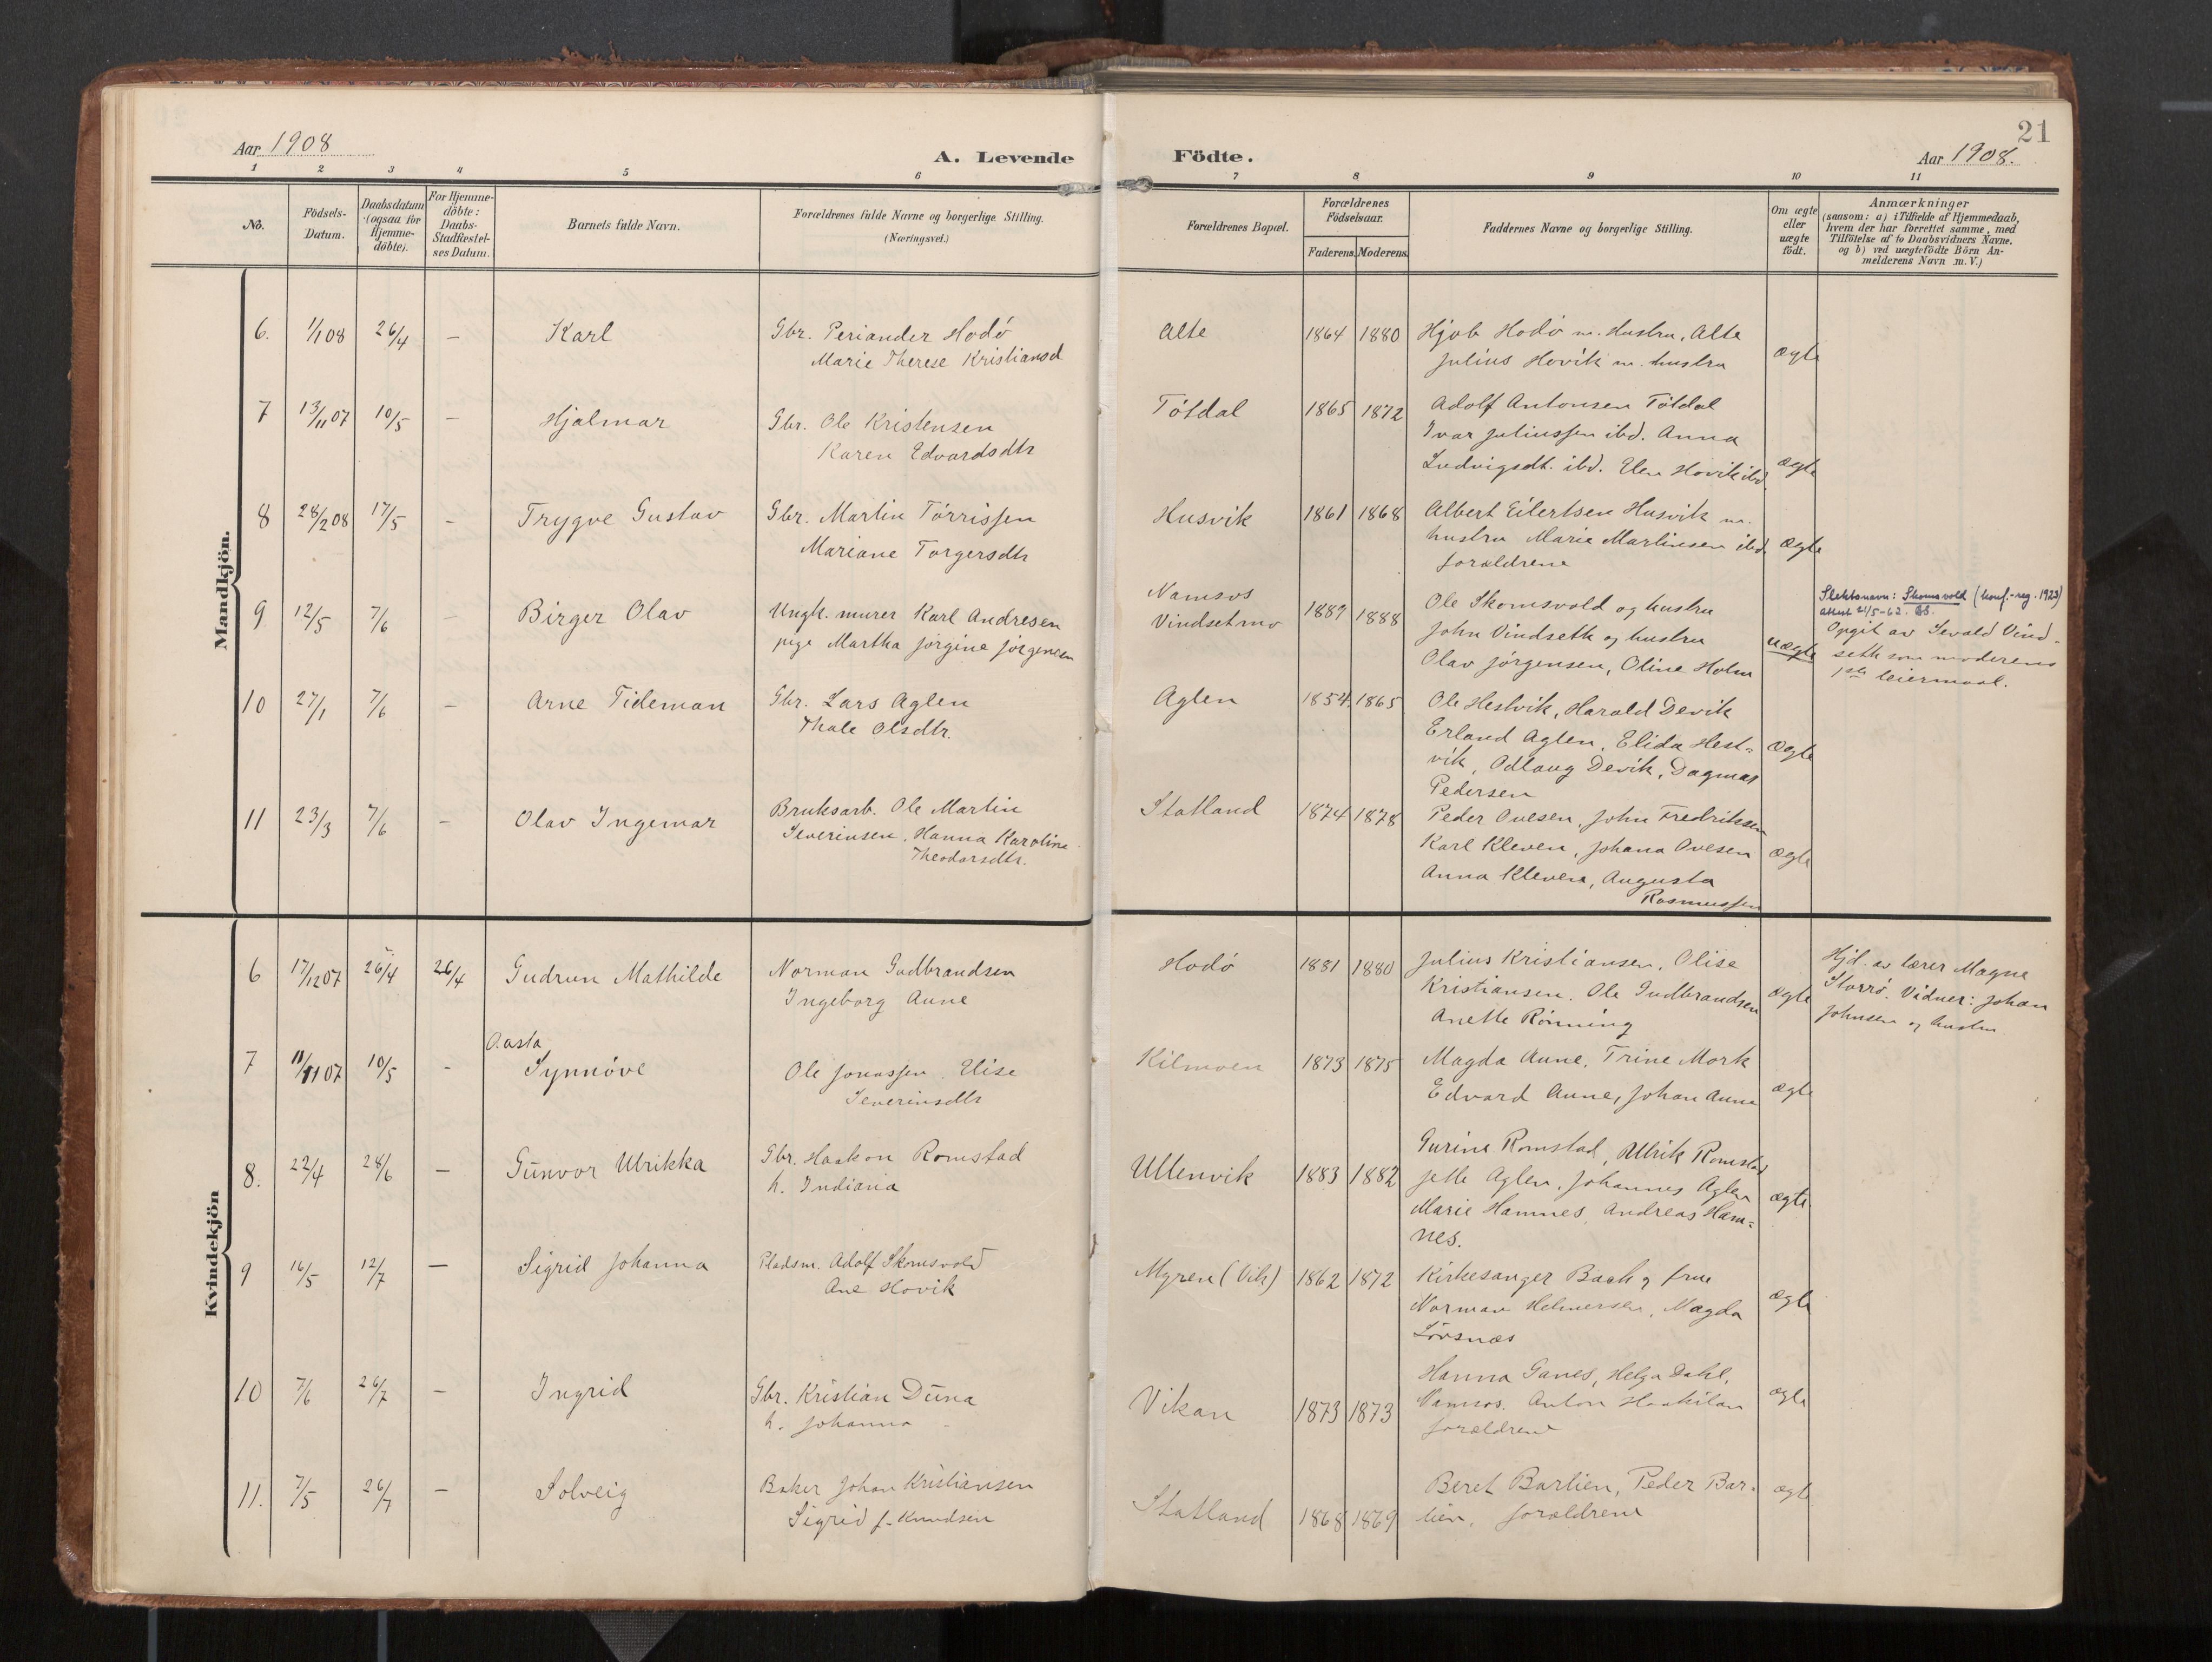 21
Aar 1908
A. Levende Födte.
Aar 1908.
1 2 3 4 5 6 7 8 9 10 11
No.
Födsels-Datum.
Daabsdatum (ogsaa for Hjemme-döbte).
For Hjemme-döbte: Daabs-Stadfæstel-ses Datum.
Barnets fulde Navn.
Forældrenes fulde Navne og borgerlige Stilling. (Næringsvei.)
Forældrenes Bopæl.
Forældrenes Födselsaar.
Faderens. Moderens.
Faddernes Navne og borgerlige Stilling.
Om ægte eller uægte födt.
Anmærkninger
(saasom: a) i Tilfælde af Hjemmedaab,
hvem der har forrettet samme, med
Tilföielse af to Daabsvidners Navne,
og b) ved uægtefödte Börn An-
melderens Navn m. V.)
Mandkjön.
6. 1/1 08 26/4 – Karl Gbr. Periander Hodö Alte 1864 1880 Hjab Hodö m. Hustru, Alte
Marie Therese Kristiansd Julius Hovik m. hustru ægte
7 13/11 07 10/5 – Hjalmar Gbr. Ole Kristensen Tötdal 1865 1872 Adolf Antonsen Tötdal
Karen Edvardsdtr Ivar Juliussen ibd. Anna
Ludvigsdt. ibd. Elen Hovik ibd. ægte
8 28/2 08 17/5 – Trygve Gustav Gbr. Martin Törrissen Husvik 1861 1868 Albert Eilertsen Husvik m.
Mariane Torgersdtr hustru Marie Martinsen ibd ægte
forældrene
9 12/5 7/6 – Birger Olav Ungk. murer Karl Andresen Namsos 1889 1888 Ole Skomsvold og hustru
pige Martha Jörgine Jörgensen Vindsetmo John Vindseth og hustru
Olav Jörgensen, Oline Holm uægte
Slektsnavn: Skomsvold (konf.-reg. 1923)
attest 21/5-62.
Opgit av Sevald Vind-
seth som moderens
1ste leiermaal.
10 27/1 7/6 – Arne Tideman Gbr. Lars Aglen Aglen 1854 1865 Ole Hestvik, Harald Devik
Thale Olsdtr. Erland Aglen, Elida Hest-
vik, Odlaug Devik, Dagmar ægte
Pedersen
11 23/3 7/6 – Olav Ingemar Bruksarb. Ole Martin Statland 1874 1878 Peder Ovesen, John Fredriksen
Severinsen, Hanna Karoline Karl Kleven, Johana Ovesen ægte
Theodorsdtr. Anna Kleven, Augusta
Rasmussen
Kvindekjön
6 17/12 07 26/4 26/4 Gudrun Mathilde Norman Gudbrandsen Hodö 1881 1880 Julius Kristiansen, Olise
Ingeborg Aune Kristiansen. Ole Gudbrandsen ægte
Anette Rönning
Hjd. av lærer Magne
Storrö. Vidner: Johan
Johnsen og hustru.
7 11/11 07 10/5 – Aasta
Synnöve Ole Jonassen Elise Kilmoen 1873 1875 Magda Aune, Trine Mork
Severinsdtr Edvard Aune, Johan Aune ægte
8. 22/4 28/6 – Gunvor Ulrikka Gbr. Haakon Romstad Ullenvik 1883 1882 Gurine Romstad, Ulrik Romstad
h. Indiana Jette Aglen, Johannes Aglen ægte.
Marie Hamnes, Andreas Ham-
nes.
9 16/5 12/7 – Sigrid Johanna Pladsm. Adolf Skomsvold Myren (Vik) 1862 1872 Kirkesanger Baak og frue
Ane Hovik Norman Helmersen, Magda ægte
Lövsnæs
10 7/6 26/7 – Ingrid Gbr. Kristian Duna Vikan 1873 1873 Hanna Ganes, Helga Dahl,
h. Johanna – Namsos. Anton ægte
forældrene
11. 7/5 26/7 – Solveig Baker Johan Kristiansen Statland 1868 1869 Beret Barlien, Peder Bar-
Sigrid f. Knudsen lien, forældrene ægte